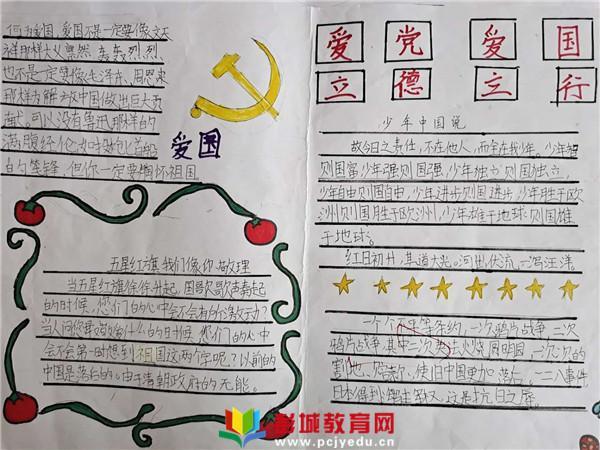 何为爱国,爱国不是一定要像文天
祥那样大义凛然,轰轰烈烈
也不是一定要像毛泽东、周恩来
那样为解放中国做出巨大贡
献,可以没有鲁迅那样的
满腹经纶如叶
的笔锋,但你一定要胸怀祖国
爱国
五星红旗,我们像你敬理
当五星红旗徐徐升起,国歌歌声奏起
的时候,您们的心中会不会有
当人问您
会不会第一时想到祖国这两个字呢?以前的
中国是落后的。由于清朝政府的无能。
爱党爱国
立德立行
少年中国说
故今日之责任,不在他人,而全在我少年。少年智
则国富,少年强则国强,少年独立则国独立,
少年自由则国自由,少年进步则国进步,少年胜于欧
洲则国胜于欧洲,少年雄于地球则国雄
于地球。
红日初升,其道大光。河出伏流,一泻汪洋。
一个个不平等条约,一次鸦片战争,二次
鸦片战争,其中二次英法火烧圆明园,一次次的
割地、赔款,使旧中国更加落后。一二八事件
日本得到
彭城教育网
www.pcjyedu.cn